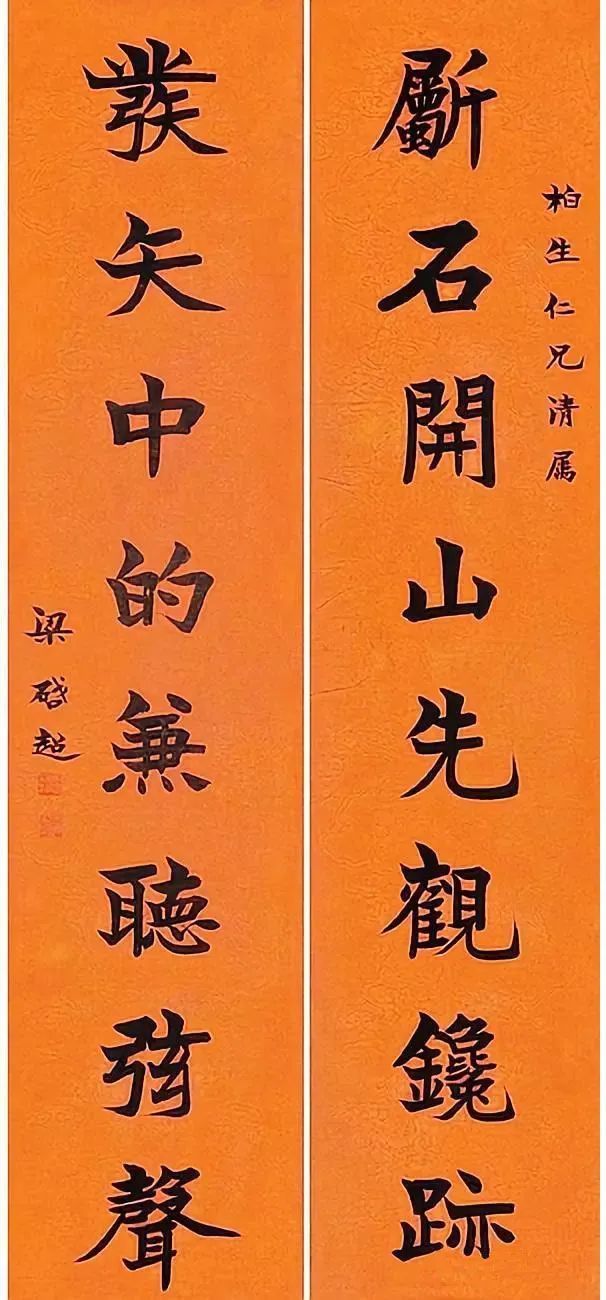 柏生仁兄清属
斸石開山先觀鑱跡
發矢中的兼聽弦聲
梁啓超